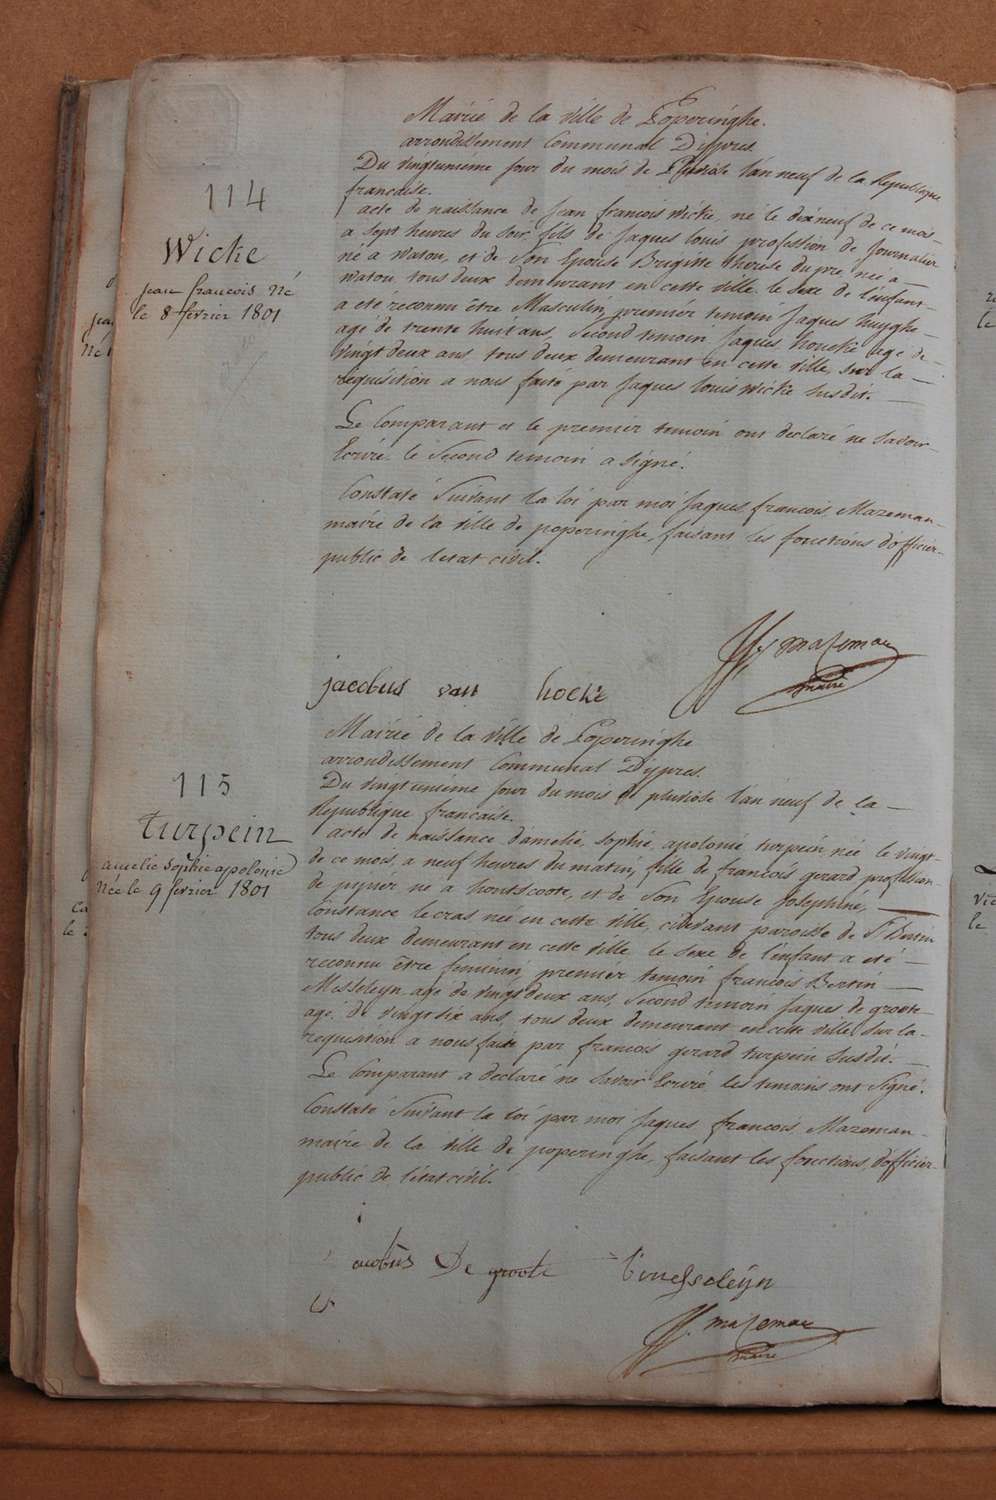 Mairie de la ville de Poperinghe.
arrondissement Communal Dijpres
Du vingtunième jour du mois de Pluviôse l'an neuf de la Republique
francaise.
acte de naissance de Jean francois wicke, né le dixneuf de ce mois
a sept heures du soir, fils de Jaques louis profession de Journalier
né a watou, et de Son Epouse Brigitte therese dupre née a
watou, tous deux demeurant en cette ville. le sexe de l'enfant
a été reconnu être Masculin, premiér temoin Jaques huyghe
age de trente huit ans, Second temoin Jaques houcke age de
vingt deux ans, tous deux demeurant en cette ville, sur la
requisition a nous faite par Jaques louis wicke susdit.
Le Comparant et le premier temoin ont declaré ne Savoir
Ecrire. le Second temoin a signé.
Constaté Suivant la loi par moi Jaques francois Mazeman
maire de la ville de poperinghe, faisant les fonctions d'officier
public de letat civil.
114
Wicke
jean francois né
le 8 février 1801
mazeman
maire
jacobus van hocke
Mairie de la ville de Poperinghe
arrondissement Communal D'ijpres.
Du vingtunième jour du mois de pluviôse l'an neuf de la
Republique francaise.
acte de naissance d'amelie, sophie, apolonie turpein née le vingt
de ce mois, a neuf heures du matin, fille de francois gerard profession
de né a hontscoote, et de Son Epouse Josephine,
Constance lecras née en cette ville, cidevant paroisse de St Bertin
tous deux demeurant en cette ville. le sexe de l'enfant a été
reconnu être feminin, premier temoin francois Bertin
Messeleyn age de vingt deux ans, Second temoin Jaques de groote
age, de vingt six ans, tous deux demeurant en cette ville, sur la
requisition a nous faite par francois gerard turpein susdit.
Le Comparant a declaré ne savoir Ecrire les temoins ont signé.
Constaté Suivant la loi par moi Jaques francois Mazeman
maire de la ville de poperinghe, faisant les fonctions, d'officier
public de l'état civil.
115
turpein
amelie sophie apolonie
née le 9 février 1801
jacobus De groote
mazeman
maire